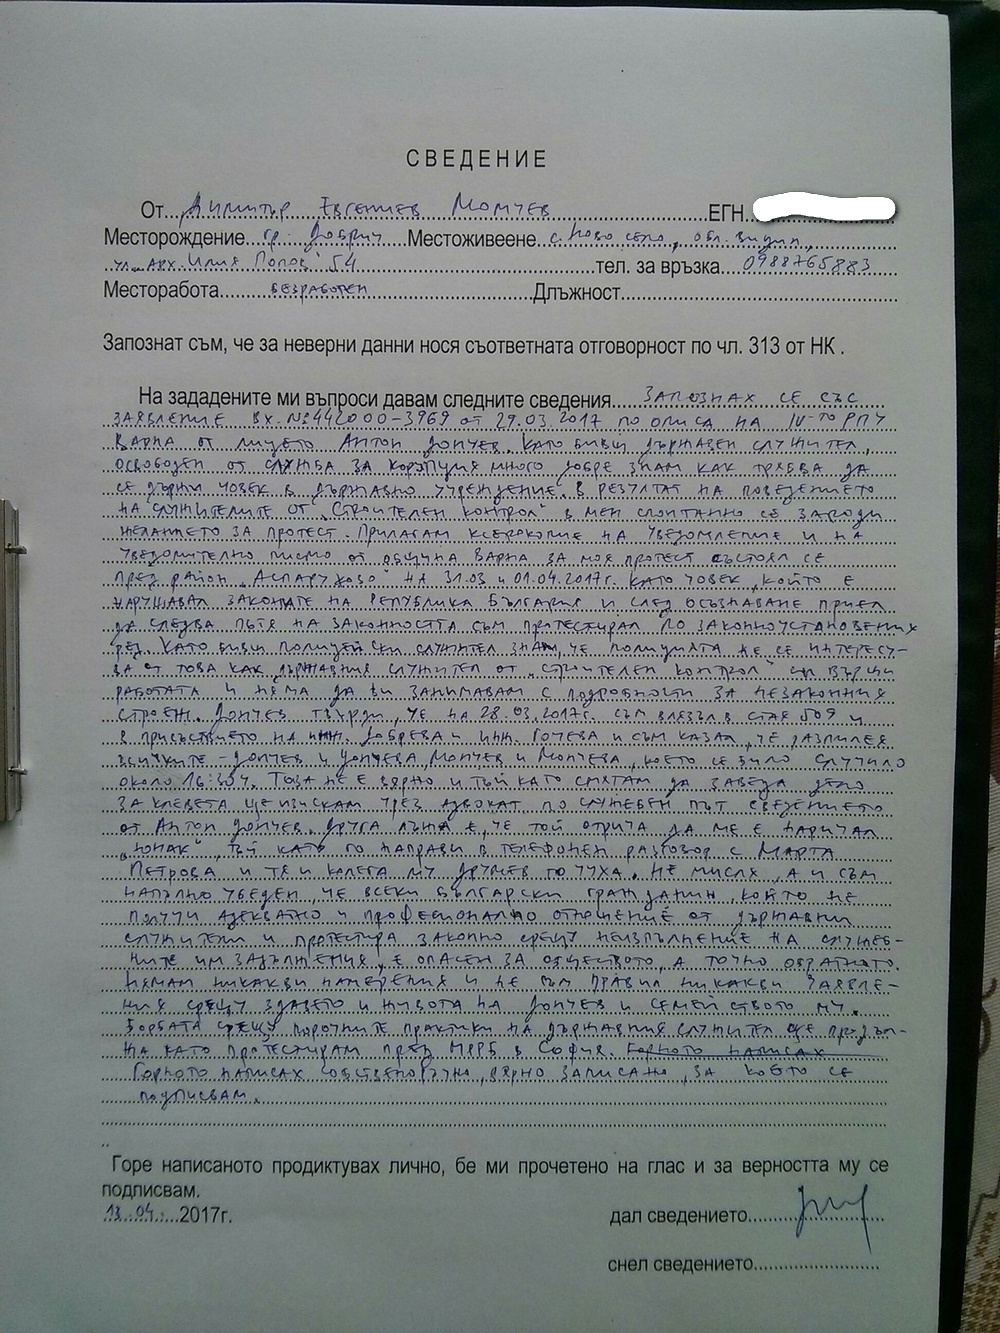 СВЕДЕНИЕ
От Димитър Евгениев Момчев ЕГН
Месторождение гр. Добрич Местоживеене с. Ново село, обл. Видин,
ул. "Арх. Илия Попов" 54 тел. за връзка 0988765883
Месторабота безработен Длъжност
Запознат съм, че за неверни данни нося съответната отговорност по чл. 313 от НК .
На зададените ми въпроси давам следните сведения Запознах се със
заявление вх. № 442000-3969 от 29.03.2017 по описа на IV-то РПУ
Варна от лицето Антон Дончев. Като бивш държавен служител,
освободен от служба за корупция много добре знам как трябва да
се държи човек в държавно учреждение. В резултат на поведението
на служителите от "Строителен контрол" в мен спонтанно се зароди
желанието за протест. Прилагам ксерокопие на уведомление и на
уведомително писмо от община Варна за моя протест състоял се
пред район "Аспарухово" на 31.03 и 01.04.2017г. Като човек, който е
нарушавал законите на Република България и след осъзнаване приел
да следва пътя на законността съм протестирал по законоустановения
ред. Като бивш полицейски служител знам, че полицията не се интересу-
ва от това как държавния служител от "Строителен контрол" си върши
работата и няма да ви занимавам с подробности за незаконния
строеж. Дончев твърди, че на 28.03.2017г. съм влязъл в стая 509 и
в присъствието на инж. Добрева и инж. Гочева и съм казал, че
всичките - Дончев и Дончева, Момчев и Момчева, което се било случило
около 16:30ч. Това не е вярно и тъй като смятам да заведа дело
за клевета ще изискам чрез адвокат по служебен път сведението
от Антон Дончев. Друга лъжа е, че той отрича да ме е наричал
"юнак", тъй като го направи в телефонен разговор с Марта
Петрова и тя и колега му Друмев го чуха. Не мисля, а и съм
напълно убеден, че всеки български гражданин, който не
получи адекватно и професионално отношение от държавни
служители и протестира законно срещу неизпълнение на служеб-
ните им задължения, е опасен за обществото, а точно обратното.
Нямам никакви намерения и не съм правил никакви заявле-
ния срещу здравето и живота на Дончев и семейството му.
Борбата срещу порочните практики на държавния служител ще продъл-
жа като протестирам пред МРРБ в София. Горното написах
Горното написах собственоръчно, вярно записано, за което се
подписвам.
Горе написаното продиктувах лично, бе ми прочетено на глас и за верността му се
подписвам.
13.04.2017г. дал сведението
снел сведението